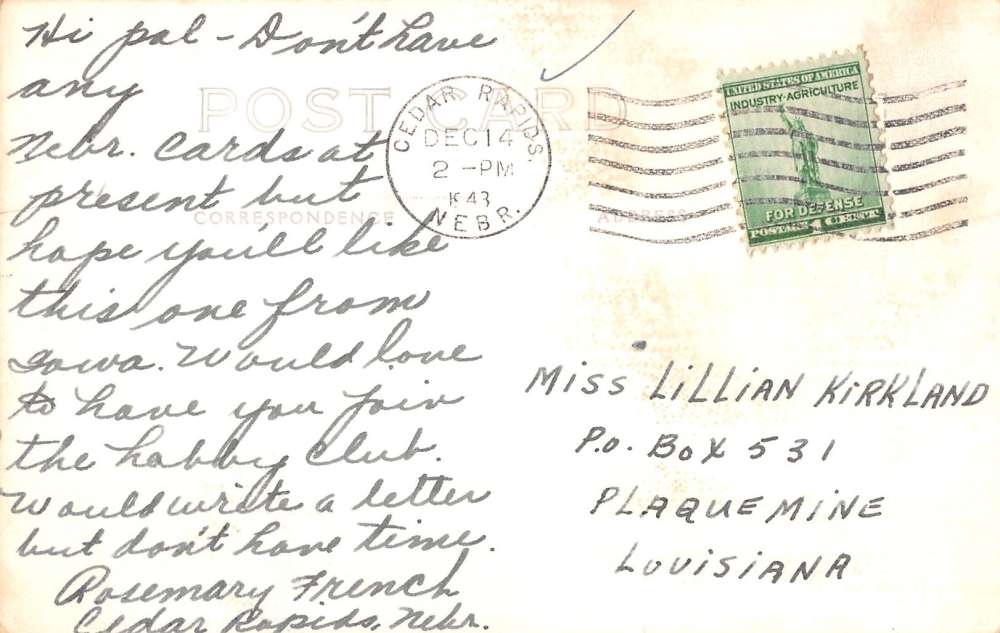 Hi pal - Don't have
any
Nebr. Cards at
present but
hope you'll like
this one from
Iowa. Would love
to have you join
the hobby club.
Would write a letter
but don't have time.
Rosemary French
Cedar Rapids, Nebr.
POST CARD
CORRESPONDENCE
ADDRESS
CEDAR RAPIDS.
DEC 14
2 - PM
1943
NEBR.
UNITED STATES OF AMERICA
INDUSTRY-AGRICULTURE
FOR DEFENSE
POSTAGE 1 CENT
MISS LILLIAN KIRKLAND
P.O. BOX 531
PLAQUEMINE
LOUISIANA